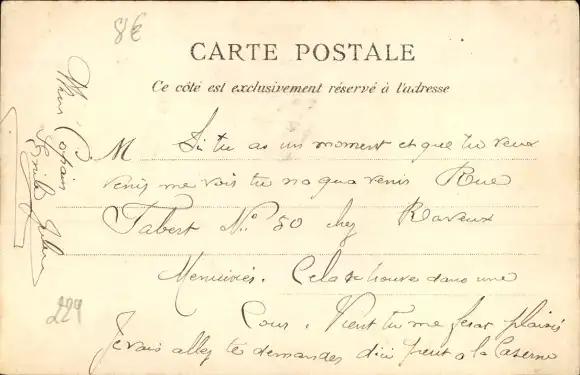 8€
CARTE POSTALE
Ce côté est exclusivement réservé à l'adresse
M Si tu as un moment et que tu veux
venir me voir tu na qua venir Rue
Tabert No 50 chez Raveux
Menuisier. Cela se trouve dans une
Cour. Vient tu me feras plaisir
Je vais aller te demander dici peut a la Caserne
Copain
Emile
229